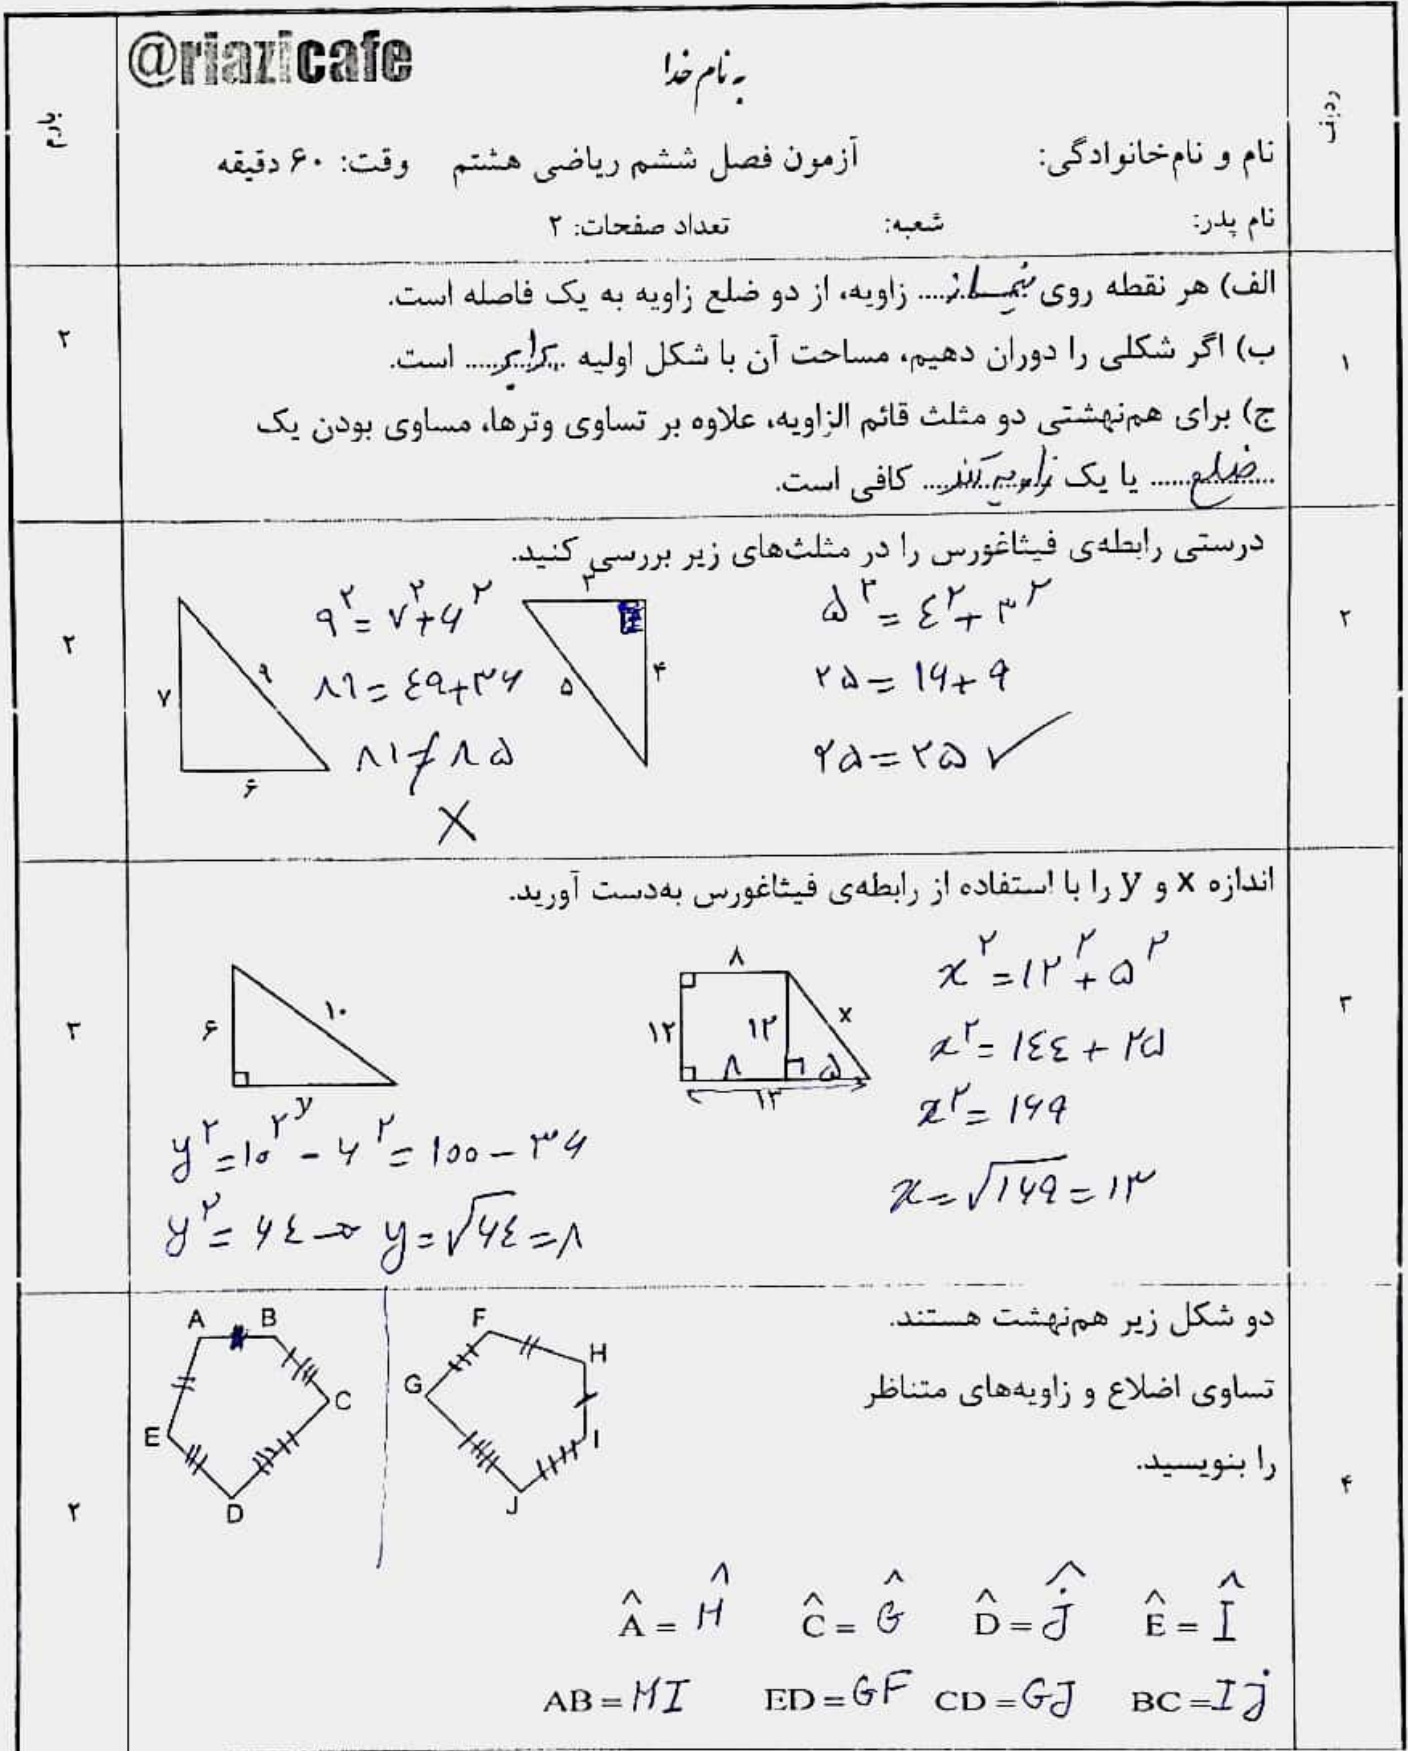 @riazicafe
به نام خدا
ردیف
بارم
نام و نام‌خانوادگی: آزمون فصل ششم ریاضی هشتم وقت: ۶۰ دقیقه
نام پدر: شعبه: تعداد صفحات: ۲
۱
الف) هر نقطه روی نیمساز.... زاویه، از دو ضلع زاویه به یک فاصله است.
ب) اگر شکلی را دوران دهیم، مساحت آن با شکل اولیه ..برابر..... است.
ج) برای هم‌نهشتی دو مثلث قائم الزاویه، علاوه بر تساوی وترها، مساوی بودن یک
...ضلع...... یا یک زاویه تند.... کافی است.
۲
۲
درستی رابطه‌ی فیثاغورس را در مثلث‌های زیر بررسی کنید.
۵^۲ = ٤^۲ + ۳^۲
۲۵ = ۱۶ + ۹
۲۵ = ۲۵ ✓
۳
۴
۵
۹^۲ = ۷^۲ + ۶^۲
۸۱ = ٤۹ + ۳۶
۸۱ ≠ ۸۵
X
۷
۹
۶
۲
۳
اندازه x و y را با استفاده از رابطه‌ی فیثاغورس به‌دست آورید.
x^۲ = ۱۲^۲ + ۵^۲
x^۲ = ۱٤٤ + ۲۵
x^۲ = ۱۶۹
x = √۱۶۹ = ۱۳
۸
۱۲ ۱۲ x
۸ ۵
۱۳
۶ ۱۰
y
y^۲ = ۱۰^۲ - ۶^۲ = ۱۰۰ - ۳۶
y^۲ = ۶٤ → y = √۶٤ = ۸
۳
۴
دو شکل زیر هم‌نهشت هستند.
تساوی اضلاع و زاویه‌های متناظر
را بنویسید.
A B
C
E
D
F
H
G
I
J
Â = Ĥ Ĉ = Ĝ D̂ = Ĵ Ê = Î
AB = HI ED = GF CD = GJ BC = IJ
۲